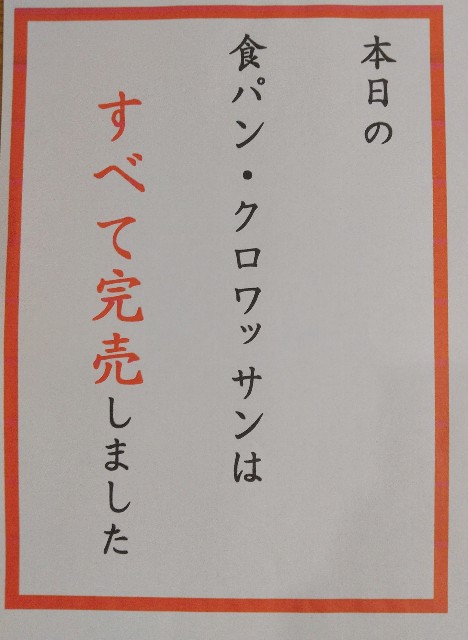 本日の
食パン・クロワッサンは
すべて完売しました